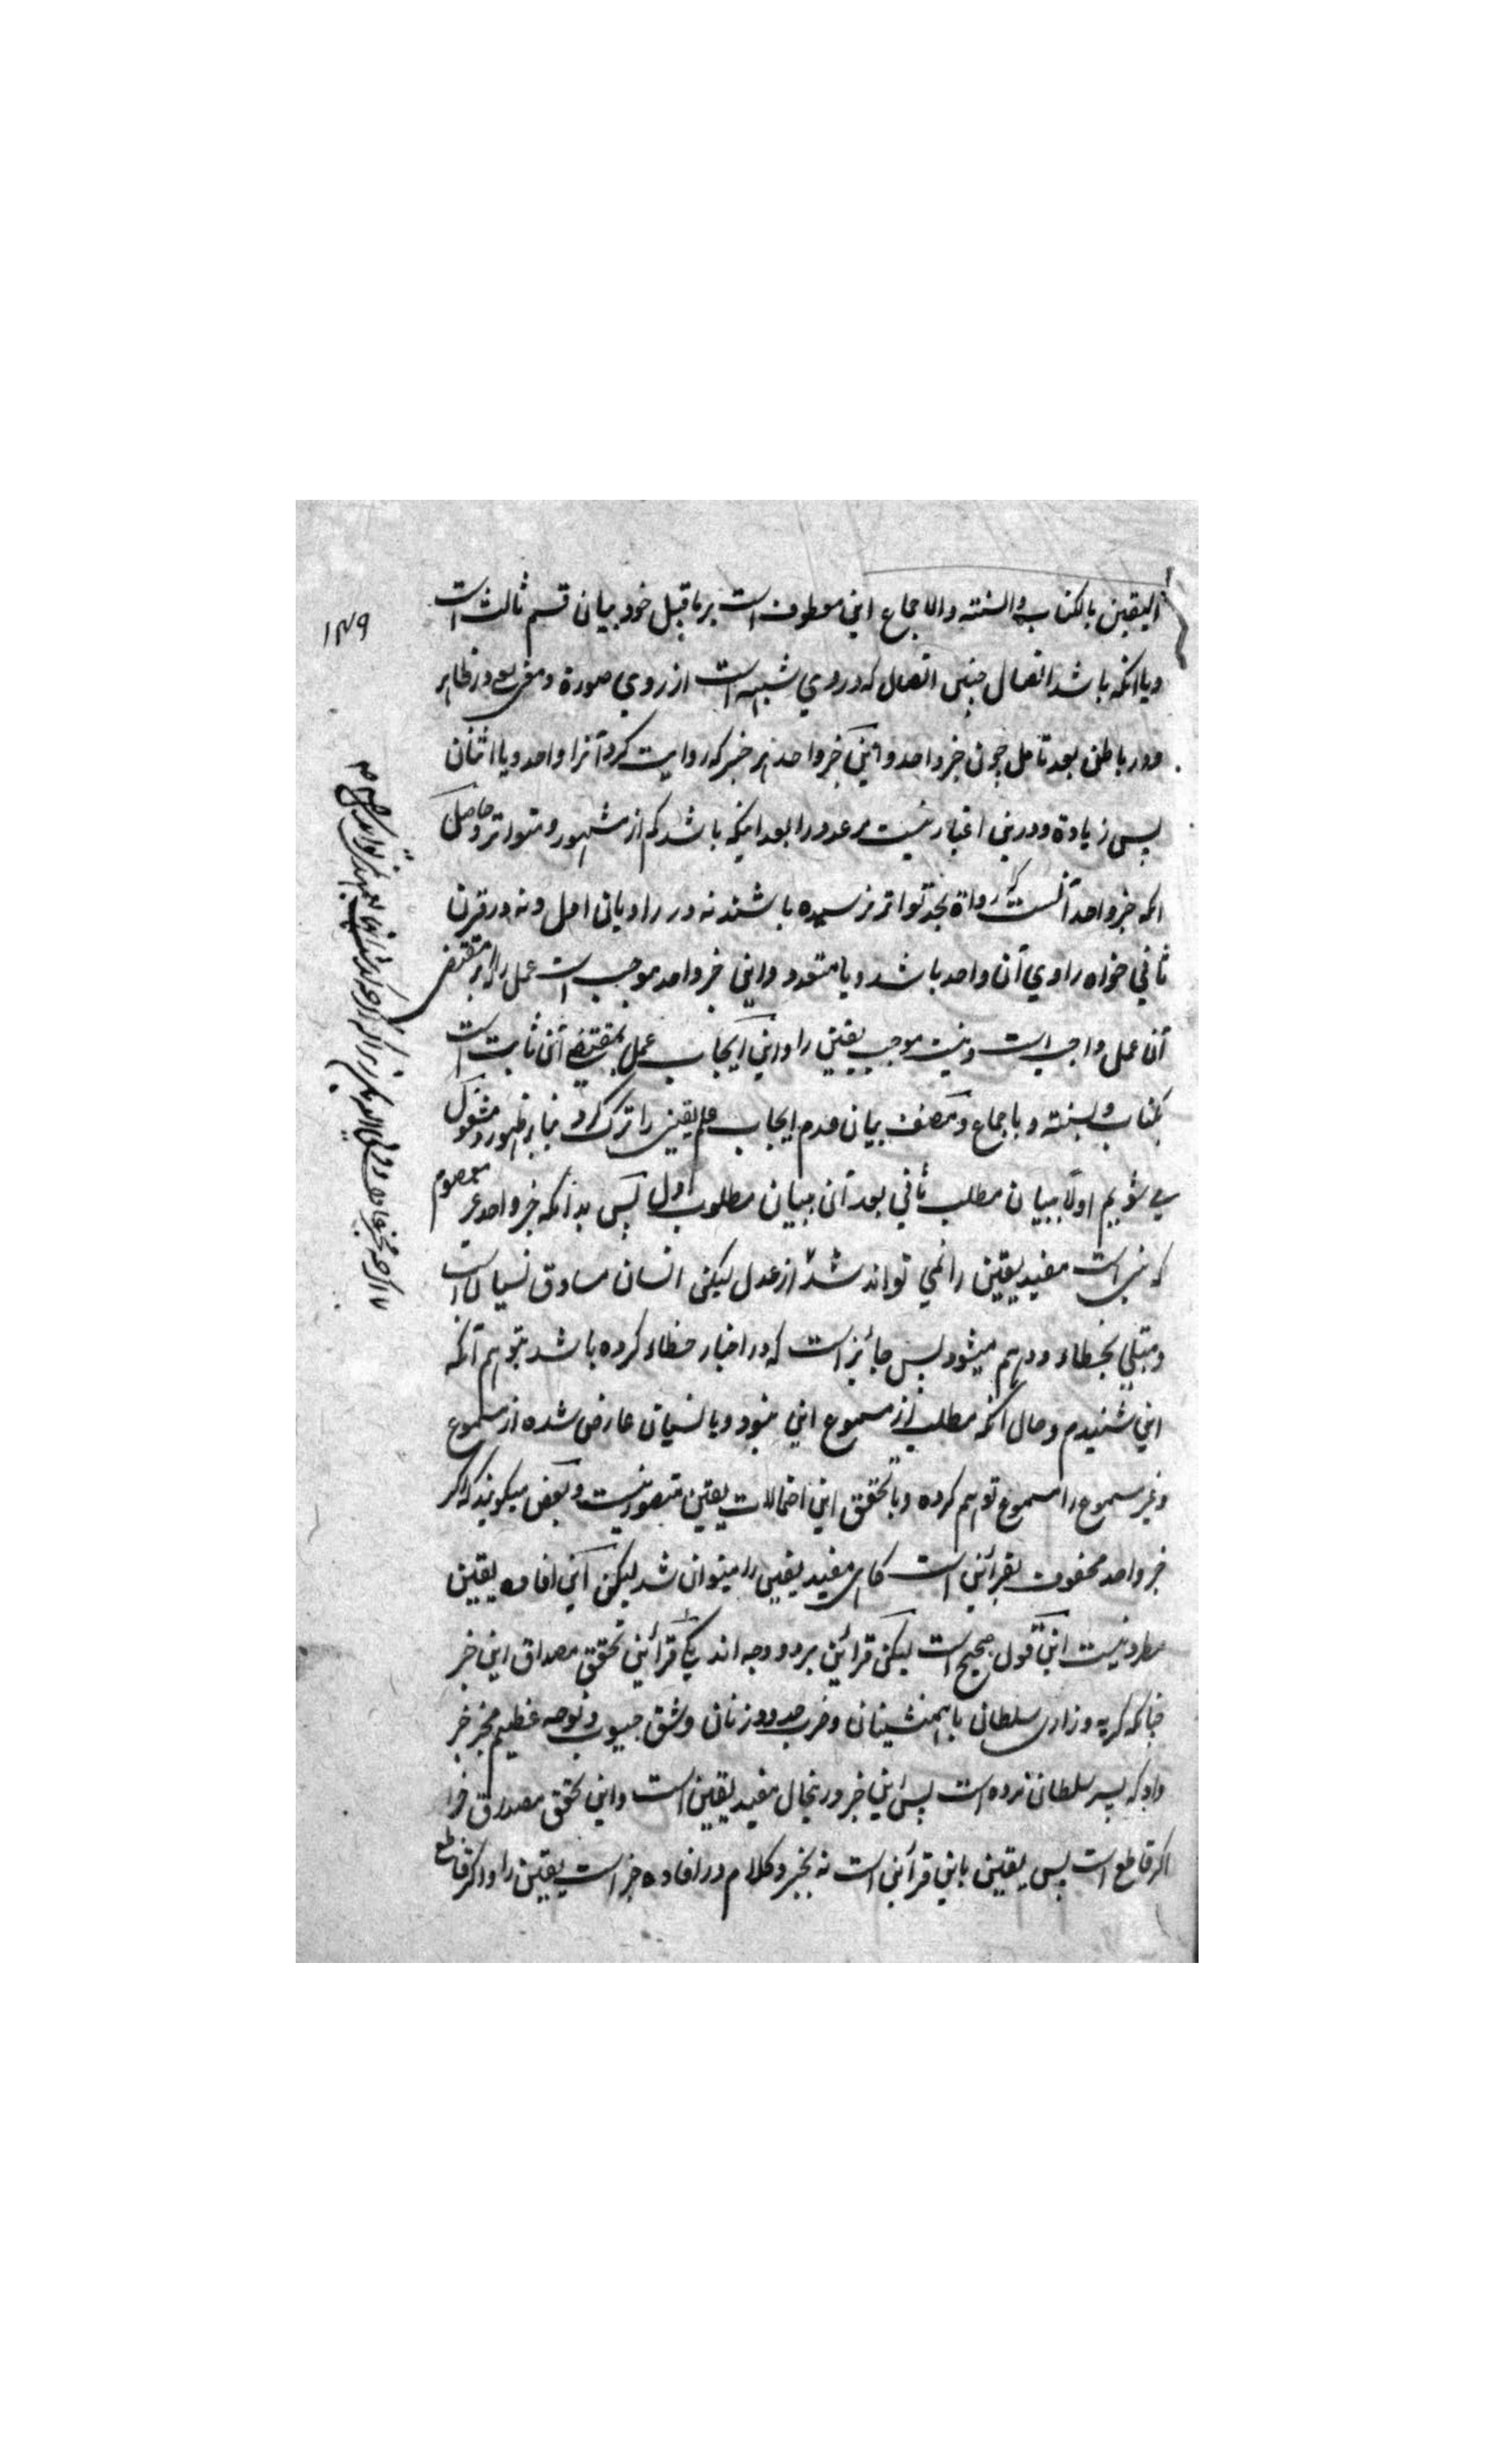 ۱۴۹
الیقین بالکتاب والسنته والاجماع این معطوف است بر ماقبل خود بیان قسم ثالث است
ویا انکه باشد اتصال چنین اتصال که در وی شبهه است از روی صورة ومعنی یعنی در ظاهر
ودر باطن بعد تامل چون خبر واحد واین خبر واحد هر خبر که روایت کرد آنرا واحد ویا اثنان
پس زیادة ودرین اعتبار نیست مر عدد را بعد اینکه باشد کم از مشهور ومتواتر وحاصل
انکه خبر واحد آنست که رواة بحد تواتر نرسیده باشند نه در راویان اول ونه در قرن
ثانی خواه راوی آن واحد باشد ویا متعدد واین خبر واحد موجب است عمل را که بر مقتضی
آن عمل واجب است ونیست موجب یقین را واین ایجاب عمل بمقتضی آن ثابت است
بکتاب وبسنته وباجماع ومصنف بیان عدم ایجاب علم یقین را ترک کرد بنا بر ظهور ومشغول
می شویم اولا ببیان مطلب ثانی بعد آن ببیان مطلوب اول پس بدانکه خبر واحد غیر معصوم
که نبی است مفید یقین را نمی تواند شد از عدل لیکن انسان مساوق نسیان است
ومبتلی بخطاء ووهم میشود پس جائز است که در اخبار خطاء کرده باشد بتوهم آنکه
این شنیدم وحال آنکه مطلب از مسموع این نبود ویا نسیان عارض شده از مسموع
وغیر مسموع را مسموع توهم کرده وبا تحقق این احتمالات یقین متصور نیست وبعض میگویند که اگر
خبر واحد محفوف بقرائن است گاهی مفید یقین را میتوان شد لیکن این افاده یقین
مطرد نیست این قول صحیح است لیکن قرائن بر دو وجه اند یکی قرائن تحقق مصداق این خبر
چنانکه گریه وزاری سلطان با همنشینان وضرب خدود زنان وشق جیوب ونوحه عظیم مخبر خبر
داد که پسر سلطان مرده است پس این خبر درینحال مفید یقین است واین تحقق مصداق خبر را
اگر قاطع است پس یقین باین قرائن است نه بخبر وکلام در افاده خبر است یقین را واگر قاطع